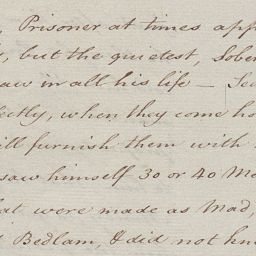 Prisoner at times app
but the quietest, Sober
saw in all his life —
ectly, when they come ho
ill furnish them with
saw himself 30 or 40 Me
hat were made as Mad,
Bedlam, & did not kn